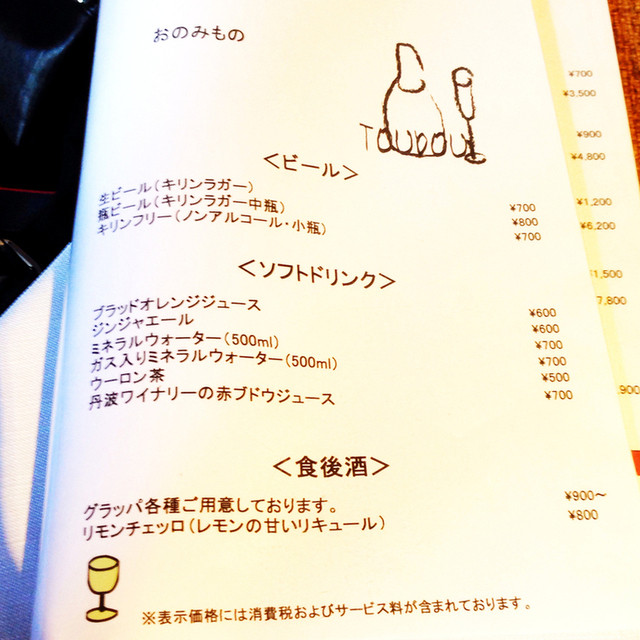 おのみもの
Toupou
＜ビール＞
生ビール（キリンラガー） ¥700
瓶ビール（キリンラガー中瓶） ¥800
キリンフリー（ノンアルコール・小瓶） ¥700
＜ソフトドリンク＞
ブラッドオレンジジュース ¥600
ジンジャエール ¥600
ミネラルウォーター（500ml） ¥700
ガス入りミネラルウォーター（500ml） ¥700
ウーロン茶 ¥500
丹波ワイナリーの赤ブドウジュース ¥700
＜食後酒＞
グラッパ各種ご用意しております。 ¥900～
リモンチェッロ（レモンの甘いリキュール） ¥800
※表示価格には消費税およびサービス料が含まれております。
¥700
¥3,500
¥900
¥4,800
¥1,200
¥6,200
¥1,500
7,800
,900